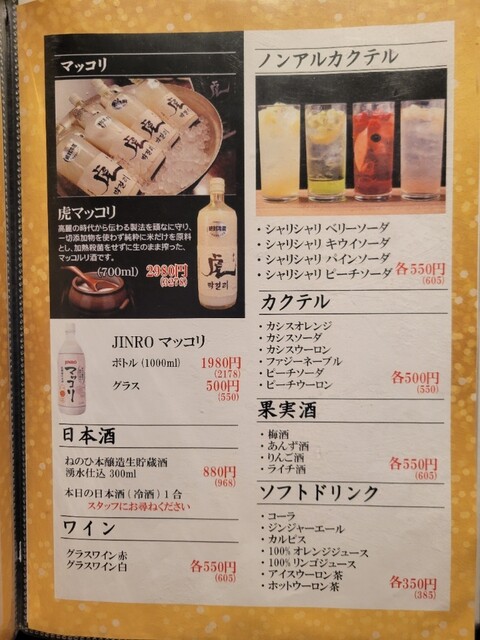 マッコリ
虎
막걸리
虎マッコリ
高麗の時代から伝わる製法を頑なに守り、
一切添加物を使わず純粋に米だけを原料
とし、加熱殺菌をせずに生のまま搾った、
マッコルリ酒です。
(700ml) 2980円
(3278)
虎
막걸리
JINRO マッコリ
ボトル (1000ml) 1980円
(2178)
グラス 500円
(550)
JINRO
マッコリ
日本酒
ねのひ本醸造生貯蔵酒
湧水仕込 300ml 880円
(968)
本日の日本酒 (冷酒) 1合
スタッフにお尋ねください
ワイン
グラスワイン赤
グラスワイン白 各550円
(605)
ノンアルカクテル
・シャリシャリ ベリーソーダ
・シャリシャリ キウイソーダ
・シャリシャリ パインソーダ
・シャリシャリ ピーチソーダ 各550円
(605)
カクテル
・カシスオレンジ
・カシスソーダ
・カシスウーロン
・ファジーネーブル
・ピーチソーダ
・ピーチウーロン 各500円
(550)
果実酒
・梅酒
・あんず酒
・りんご酒
・ライチ酒 各550円
(605)
ソフトドリンク
・コーラ
・ジンジャーエール
・カルピス
・100%オレンジジュース
・100%リンゴジュース
・アイスウーロン茶
・ホットウーロン茶 各350円
(385)